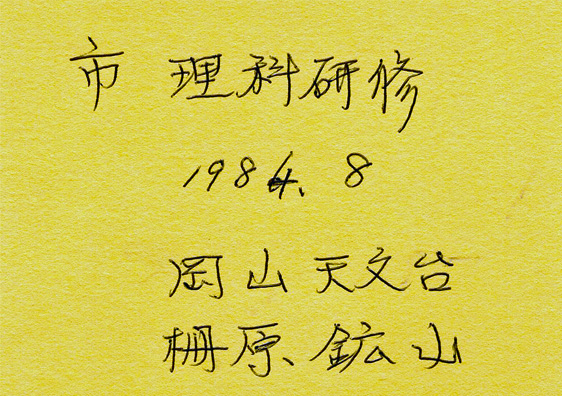 市 理科研修
1984. 8
岡山天文台
柵原、鉱山